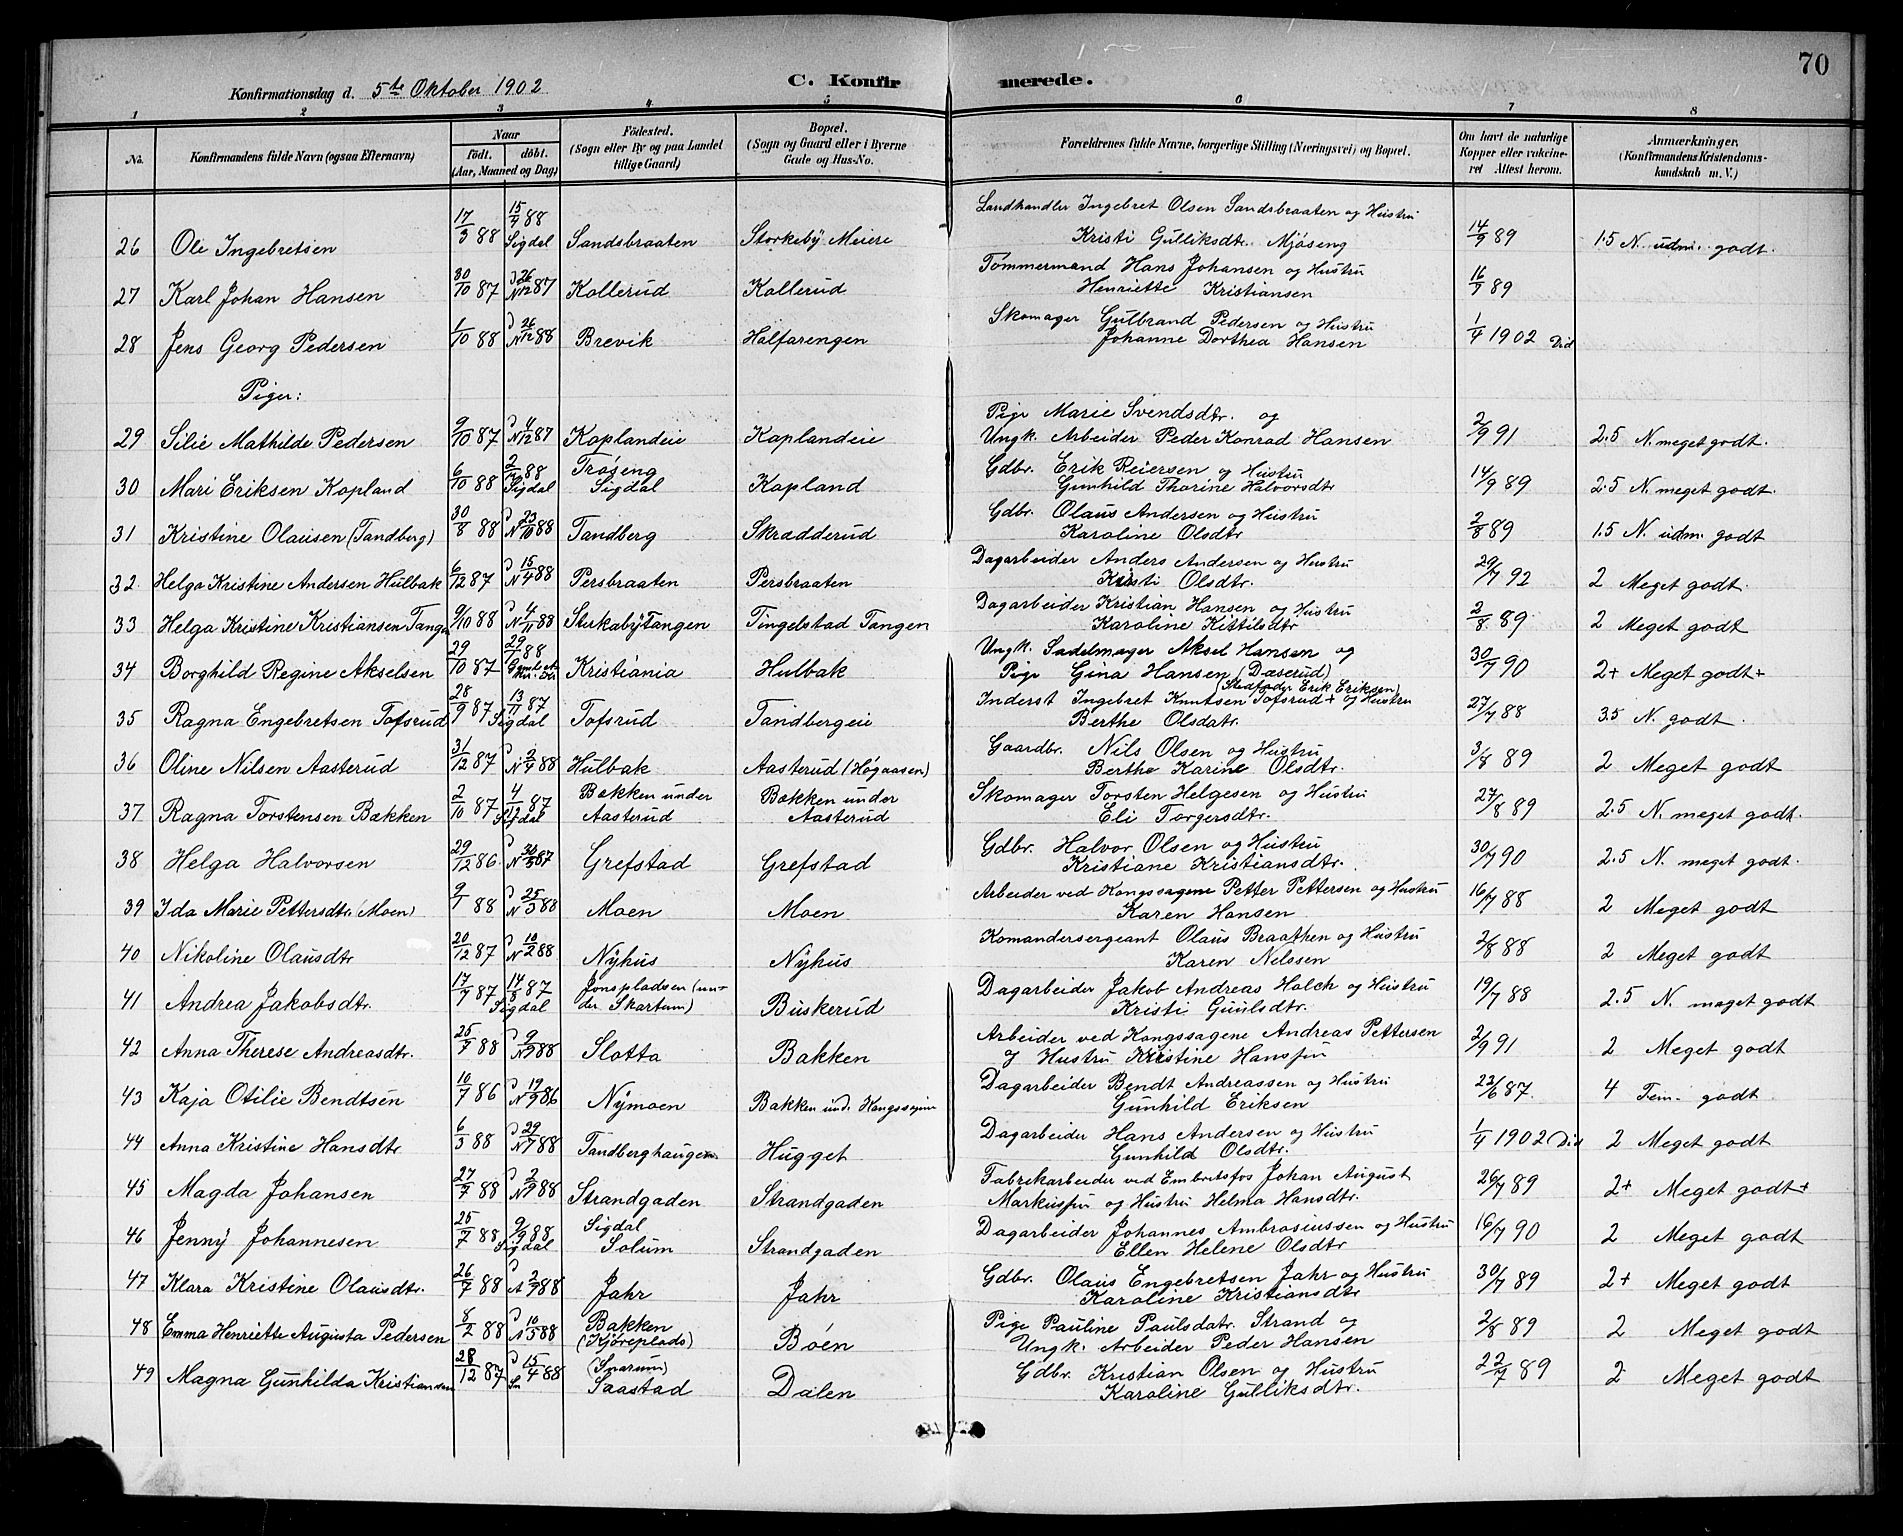 70
Konfirmationsdag d. 5te Oktober 1902 C. Konfirmerede.
1 2 3 4 5 6 7 8
No. Konfirmandens fulde Navn (ogsaa Efternavn) Naar født. døbt. (Aar, Maaned og Dag) Fødested. (Sogn eller By og paa Landet tillige Gaard) Bopæl. (Sogn og Gaard eller i Byerne Gade og Hus-No. Forældrenes fulde Navne, borgerlige Stilling (Næringsvei) og Bopæl. Om havt de naturlige Kopper eller vakcineret Attest herom. Anmærkninger. (Konfirmandens Kristendomskundskab m. V.)
26 Ole Ingebretsen 17/3 88 15/4 88 Sigdal Sandsbraaten Storkeby Meieri Landhandler Ingebret Olsen Sandsbraaten og Hustru Kristi Gulliksdtr. Mjøseng 14/9 89 1.5 N. udm. godt.
27 Karl Johan Hansen 30/10 87 N 26/12 87 Kollerud Kollerud Tømmermand Hans Johansen og Hustru Henriette Kristiansen 16/9 89
28 Jens Georg Pedersen 1/10 88 N 26/12 88 Brevik Halfarengen Skomager Gulbrand Pedersen og Hustru Johanne Dorthea Hansen 1/4 1902 Did
Piger:
29 Silie Mathilde Pedersen 9/10 87 N 4/12 87 Koplandeie Koplandeie Pige Marie Svendsdtr. og Ungk. Arbeider Peder Konrad Hansen 2/9 91 2.5 N. meget godt.
30 Mari Eriksen Kopland 6/10 88 88 Sigdal Trøseng Sigdal Kopland Gdbr. Erik Reiersen og Hustru Gunhild Thorine Halvorsdtr 14/9 89 2.5 N. meget godt.
31 Kristine Olausen (Tandberg) 30/8 88 N 23/10 88 Tandberg Skrædderud Gdbr. Olaus Andersen og Hustru Karoline Olsdtr 2/8 89 1.5 N. udm. godt
32. Helga Kristine Andersen Hulbak 6/12 87 N 15/4 88 Persbraaten Persbraaten Dagarbeider Anders Andersen og Hustru Kristi Olsdtr. 29/7 92 2 Meget godt.
33 Helga Kristine Kristiansen Tangen 9/10 88 N 4/11 88 StukabyTangen Tingelstad Tangen Dagarbeider Kristian Hansen og Hustru Karoline Kittilsdtr 2/8 89 2 Meget godt
34 Borghild Regine Akselsen 29/10 87 88 Kristiania Hulbak Ungk. Sadelmager Aksel Hansen og Pige Gina Hansen (Dæserud) 30/7 90 2+ Meget godt+
35 Ragna Engebretsen Tofsrud 28/9 87 13/11 87 Sigdal Tofsrud Tandbergeie Inderst Ingebret Knutsen Tofsrud + (Stedfader Erik Eriksen) og Hustru Berthe Olsdatr. 27/7 88 3.5 N. godt.
36 Oline Nilsen Aasterud 31/12 87 N 2/4 88 Hulbak Aasterud (Høgaasen) Gaardbr. Nils Olsen og Hustru Berthe Karine Olsdtr. 3/8 89 2 Meget godt
37 Ragna Torstensen Bakken 2/10 87 4/12 87 Sigdal Bakken under Aasterud Bakken under Aasterud Skomager Torsten Helgesen og Hustru Eli Torgersdtr. 27/8 89 2.5 N. meget godt.
38 Helga Halvorsen 29/12 86. N 30/5 87 Grefstad Grefstad Gdbr. Halvor Olsen og Hustru Kristiane Kristiansdtr. 30/7 90 2.5 N. meget godt.
39 Ida Marie Pettersdtr. (Moen) 9/1 88 N 25/3 88 Moen Moen Arbeider ved Kongssagene Petter Pettersen og Hustru Karen Hansen 16/7 88 2 Meget godt
40 Nikoline Olausdtr 20/12 87 N 10/2 88 Nyhus Nyhus Komandersergeant Olaus Braathen og Hustru Karen Nelssen 2/8 88 2 Meget godt
41 Andrea Jakobsdtr. 17/7 87 14/8 87 Sigdal Jonspladsen (under Skartum) Buskerud Dagarbeider Jakob Andreas Holch og Hustru Kristi Guulsdtr. 19/7 88 2.5 N. maget godt
42 Anna Therese Andreasdtr. 25/7 88 N 9/9 88 Slotta Bakken Arbeider ved Kongssagene Andreas Pettersen og Hustru Kristine Hansen 2/9 91 2 Meget godt
43 Kaja Otilie Bendtsen 10/7 86 N 19/9 86 Nymoen Bakken und. Kongssagene Dagarbeider Bendt Andreassen og Hustru Gunhild Eriksen 23/6 87. 4 Tem. godt
44 Anna Kristine Hansdtr. 6/3 88 N 29/7 88 Tandberghaugen Hugget Dagarbeider Hans Andersen og Hustru Gunhild Olsdtr. 1/4 1902 Did 2 Meget godt
45 Magda Johansen 27/7 88 N 2/9 88 Strandgaden Strandgaden Fabrikarbeider ved Embretsfos Johan August Markussen og Hustru Helma Hansdtr. 26/7 89 2+ Meget godt+
46 Jenny Johannesen 25/7 88 9/9 88 Sigdal Sigdal Solum Strandgaden Dagarbeider Johannes Ambrosiussen og Hustru Ellen Helene Olsdtr 16/7 90 2 Meget godt
47 Klara Kristine Olausdtr. 26/7 88 N 2/9 88 Jahr Jahr Gdbr. Olaus Engebretsen Jahr og Hustru Karoline Kristiansdtr 30/7 89 2+ Meget godt
48 Emma Henriette Augusta Pedersen 8/2 88 N 10/5 88 Bakken (Kjøreplads) Bøen Pige Pauline Paulsdatr. Strand og Ungk. Arbeider Peder Hansen 2/8 89 2 Meget godt
49 Magna Gunhilda Kristiansen 28/12 87 Sn 15/4 88 (Snarum) Saastad Dalen Gdbr. Kristian Olsen og Hustru Karoline Gulliksdtr. 22/7 89 2 Meget godt